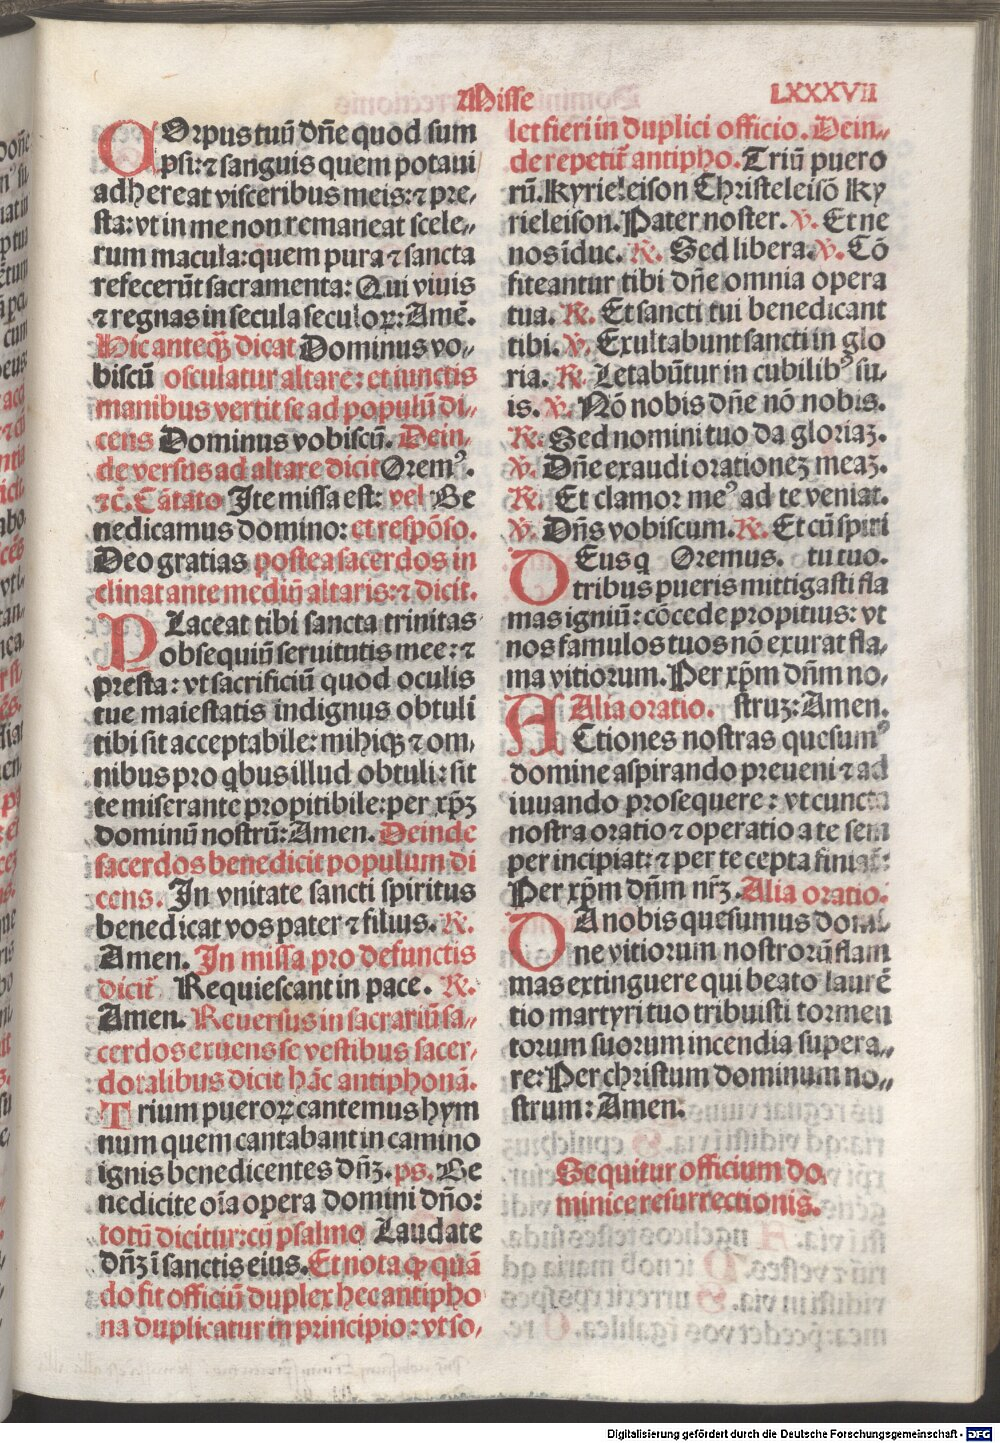 Misse
LXXXVII
COrpus tuū dñe quod sum
psi: ⁊ sanguis quem potaui
adhereat visceribus meis: ⁊ pre-
sta: vt in me non remaneat scele-
rum macula: quem pura ⁊ sancta
refecerūt sacramenta: Qui viuis
⁊ regnas in secula seculoꝝ: Amē.
Hic anteqꝫ dicat Dominus vo-
biscū osculatur altare: et iunctis
manibus vertit se ad populū di-
cens Dominus vobiscū. Dein,
de versus ad altare dicit Oremꝰ.
⁊c̄. Cātato Ite missa est: vel Be
nedicamus domino: et respōso.
Deo gratias postea sacerdos in
clinat ante mediū altaris: ⁊ dicit.
PLaceat tibi sancta trinitas
obsequiū seruitutis mee: ⁊
presta: vt sacrificiū quod oculis
tue maiestatis indignus obtuli
tibi sit acceptabile: mihiqꝫ ⁊ om,
nibus pro qbus illud obtuli: sit
te miserante propitibile: per xp̄ꝫ
dominū nostrū: Amen. Deinde
sacerdos benedicit populum di
cens. In vnitate sancti spiritus
benedicat vos pater ⁊ filius. ℟.
Amen. In missa pro defunctis
dicit̄ Requiescant in pace. ℟.
Amen. Reuersus in sacrariū sa-
cerdos exuens se vestibus sacer,
dotalibus dicit hāc antiphonā.
Trium pueroꝝ cantemus hym
num quem cantabant in camino
ignis benedicentes dn̄ꝫ. ps. Be
nedicite oīa opera domini dño:
totū dicitur: cū psalmo Laudate
dn̄ꝫ ī sanctis eius. Et nota ꝙ quā
do fit officiū duplex hec antipho
na duplicatur in principio: vt so,
let fieri in duplici officio. Dein-
de repetit̄ antipho. Triū puero
rū. Kyrieleison Christeleisō Ky
rieleison. Pater noster. ℣. Et ne
nos īduc. ℟. Sed libera. ℣. Cō
fiteantur tibi dñe omnia opera
tua. ℟. Et sancti tui benedicant
tibi. ℣. Exultabunt sancti in glo
ria. ℟. Letabūtur in cubilibꝰ su-
is. ℣. Nō nobis dñe nō nobis.
℟. Sed nomini tuo da gloriaꝫ.
℣. Dñe exaudi orationeꝫ meaꝫ.
℟. Et clamor meꝰ ad te veniat.
℣. Dñs vobiscum. ℟. Et cū spiri
DEus q Oremus. tu tuo.
tribus pueris mittigasti fla
mas igniū: cōcede propitius: vt
nos famulos tuos nō exurat fla,
ma vitiorum. Per xp̄m dn̄m no,
Alia oratio. struꝫ: Amen.
ACtiones nostras quesumꝰ
domine aspirando preueni ⁊ ad
iuuando prosequere: vt cuncta
nostra oratio ⁊ operatio a te sem
per incipiat: ⁊ per te cepta finiat̄:
Per xp̄m dn̄m nr̄ꝫ. Alia oratio.
DA nobis quesumus domi-
ne vitiorum nostrorū flam
mas extinguere qui beato laurē
tio martyri tuo tribuisti tormen
torum suorum incendia supera-
re: Per christum dominum no-
strum: Amen.
Sequitur officium do,
minice resurrectionis.
Digitalisierung gefördert durch die Deutsche Forschungsgemeinschaft - DFG